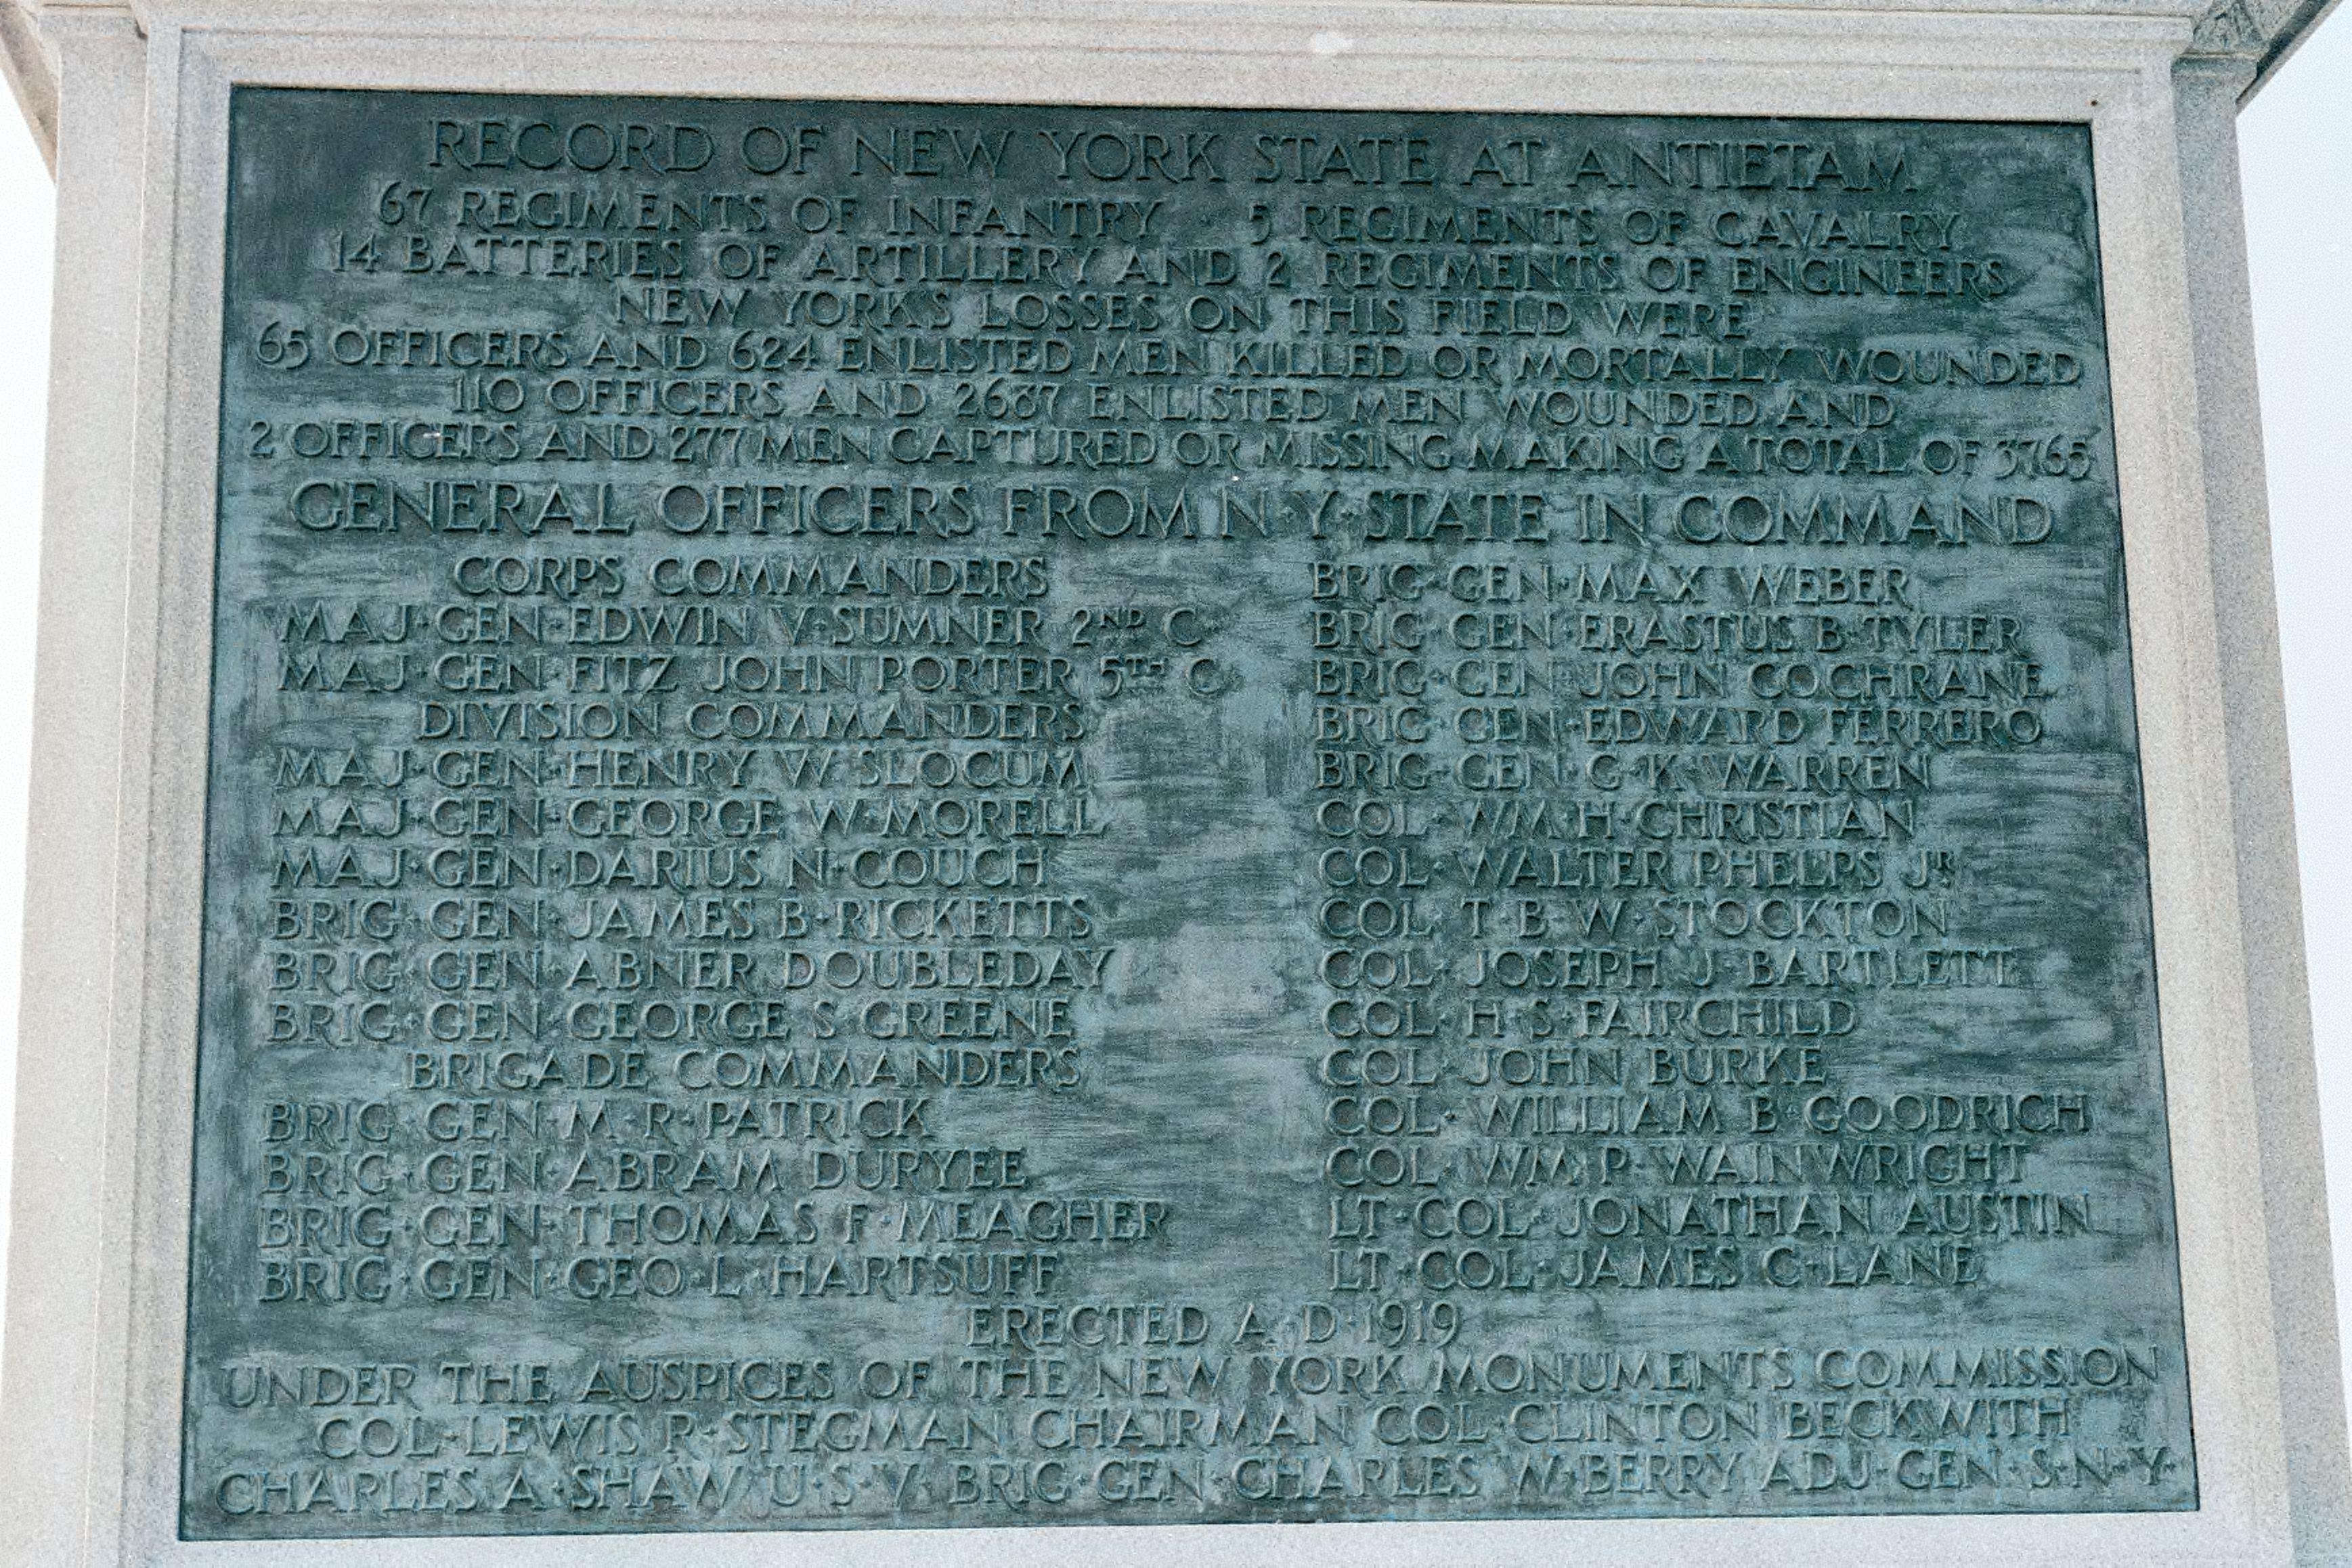 RECORD OF NEW YORK STATE AT ANTIETAM
67 REGIMENTS OF INFANTRY 5 REGIMENTS OF CAVALRY
14 BATTERIES OF ARTILLERY AND 2 REGIMENTS OF ENGINEERS
NEW YORK'S LOSSES ON THIS FIELD WERE
65 OFFICERS AND 624 ENLISTED MEN KILLED OR MORTALLY WOUNDED
110 OFFICERS AND 2687 ENLISTED MEN WOUNDED AND
2 OFFICERS AND 277 MEN CAPTURED OR MISSING MAKING A TOTAL OF 3765
GENERAL OFFICERS FROM N·Y·STATE IN COMMAND
CORPS COMMANDERS
MAJ·GEN·EDWIN V·SUMNER 2ND C
MAJ·GEN·FITZ JOHN PORTER 5TH C·
DIVISION COMMANDERS
MAJ·GEN·HENRY W·SLOCUM
MAJ·GEN·GEORGE W·MORELL
MAJ·GEN·DARIUS N·COUCH
BRIG·GEN·JAMES B·RICKETTS
BRIG·GEN·ABNER DOUBLEDAY
BRIG·GEN·GEORGE S·GREENE
BRIGADE COMMANDERS
BRIG·GEN·M·R·PATRICK
BRIG·GEN·ABRAM DURYEE
BRIG·GEN·THOMAS F·MEAGHER
BRIG·GEN·GEO·L·HARTSUFF
BRIG·GEN·MAX WEBER
BRIG·GEN·ERASTUS B·TYLER
BRIG·GEN·JOHN COCHRANE
BRIG·GEN·EDWARD FERRERO
BRIG·GEN·G·K·WARREN
COL·WM·H·CHRISTIAN
COL·WALTER PHELPS JR
COL·T·B·W·STOCKTON
COL·JOSEPH J·BARTLETT
COL·H·S·FAIRCHILD
COL·JOHN BURKE
COL·WILLIAM B·GOODRICH
COL·WM·P·WAINWRIGHT
LT·COL·JONATHAN AUSTIN
LT·COL·JAMES C·LANE
ERECTED A·D·1919
UNDER THE AUSPICES OF THE NEW YORK MONUMENTS COMMISSION
COL·LEWIS R·STEGMAN CHAIRMAN COL·CLINTON BECKWITH
CHARLES A·SHAW U·S·V· BRIG·GEN·CHARLES W·BERRY ADJ·GEN·S·N·Y·